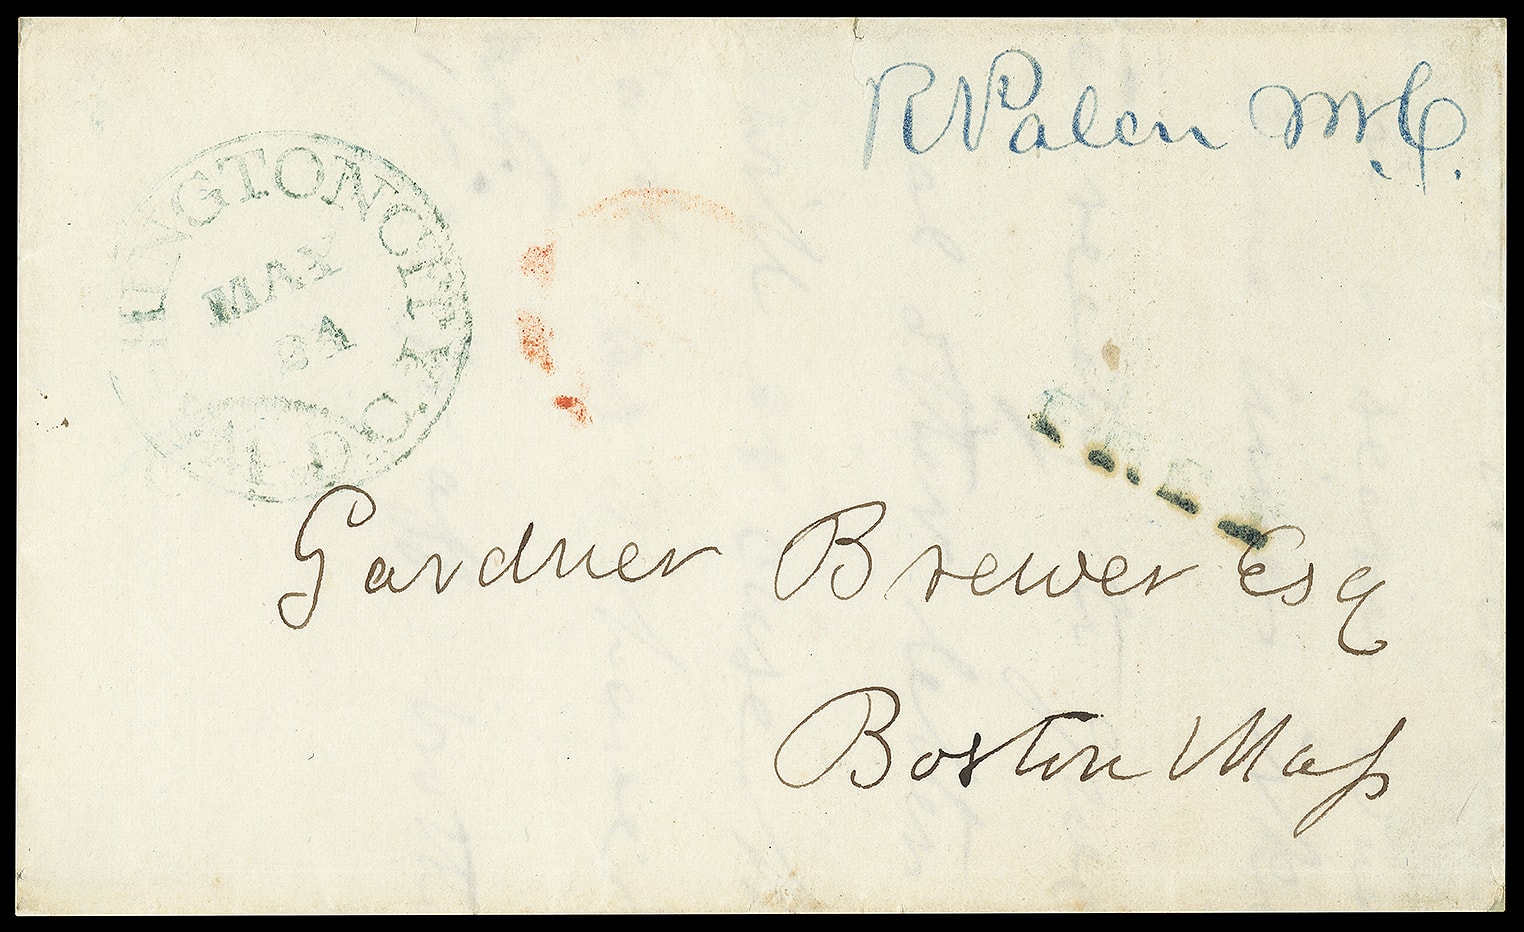 R Palen M.C.
HINGTON CITY. D.C.
MAY
24
Gardner Brewer Esq
Boston Mass